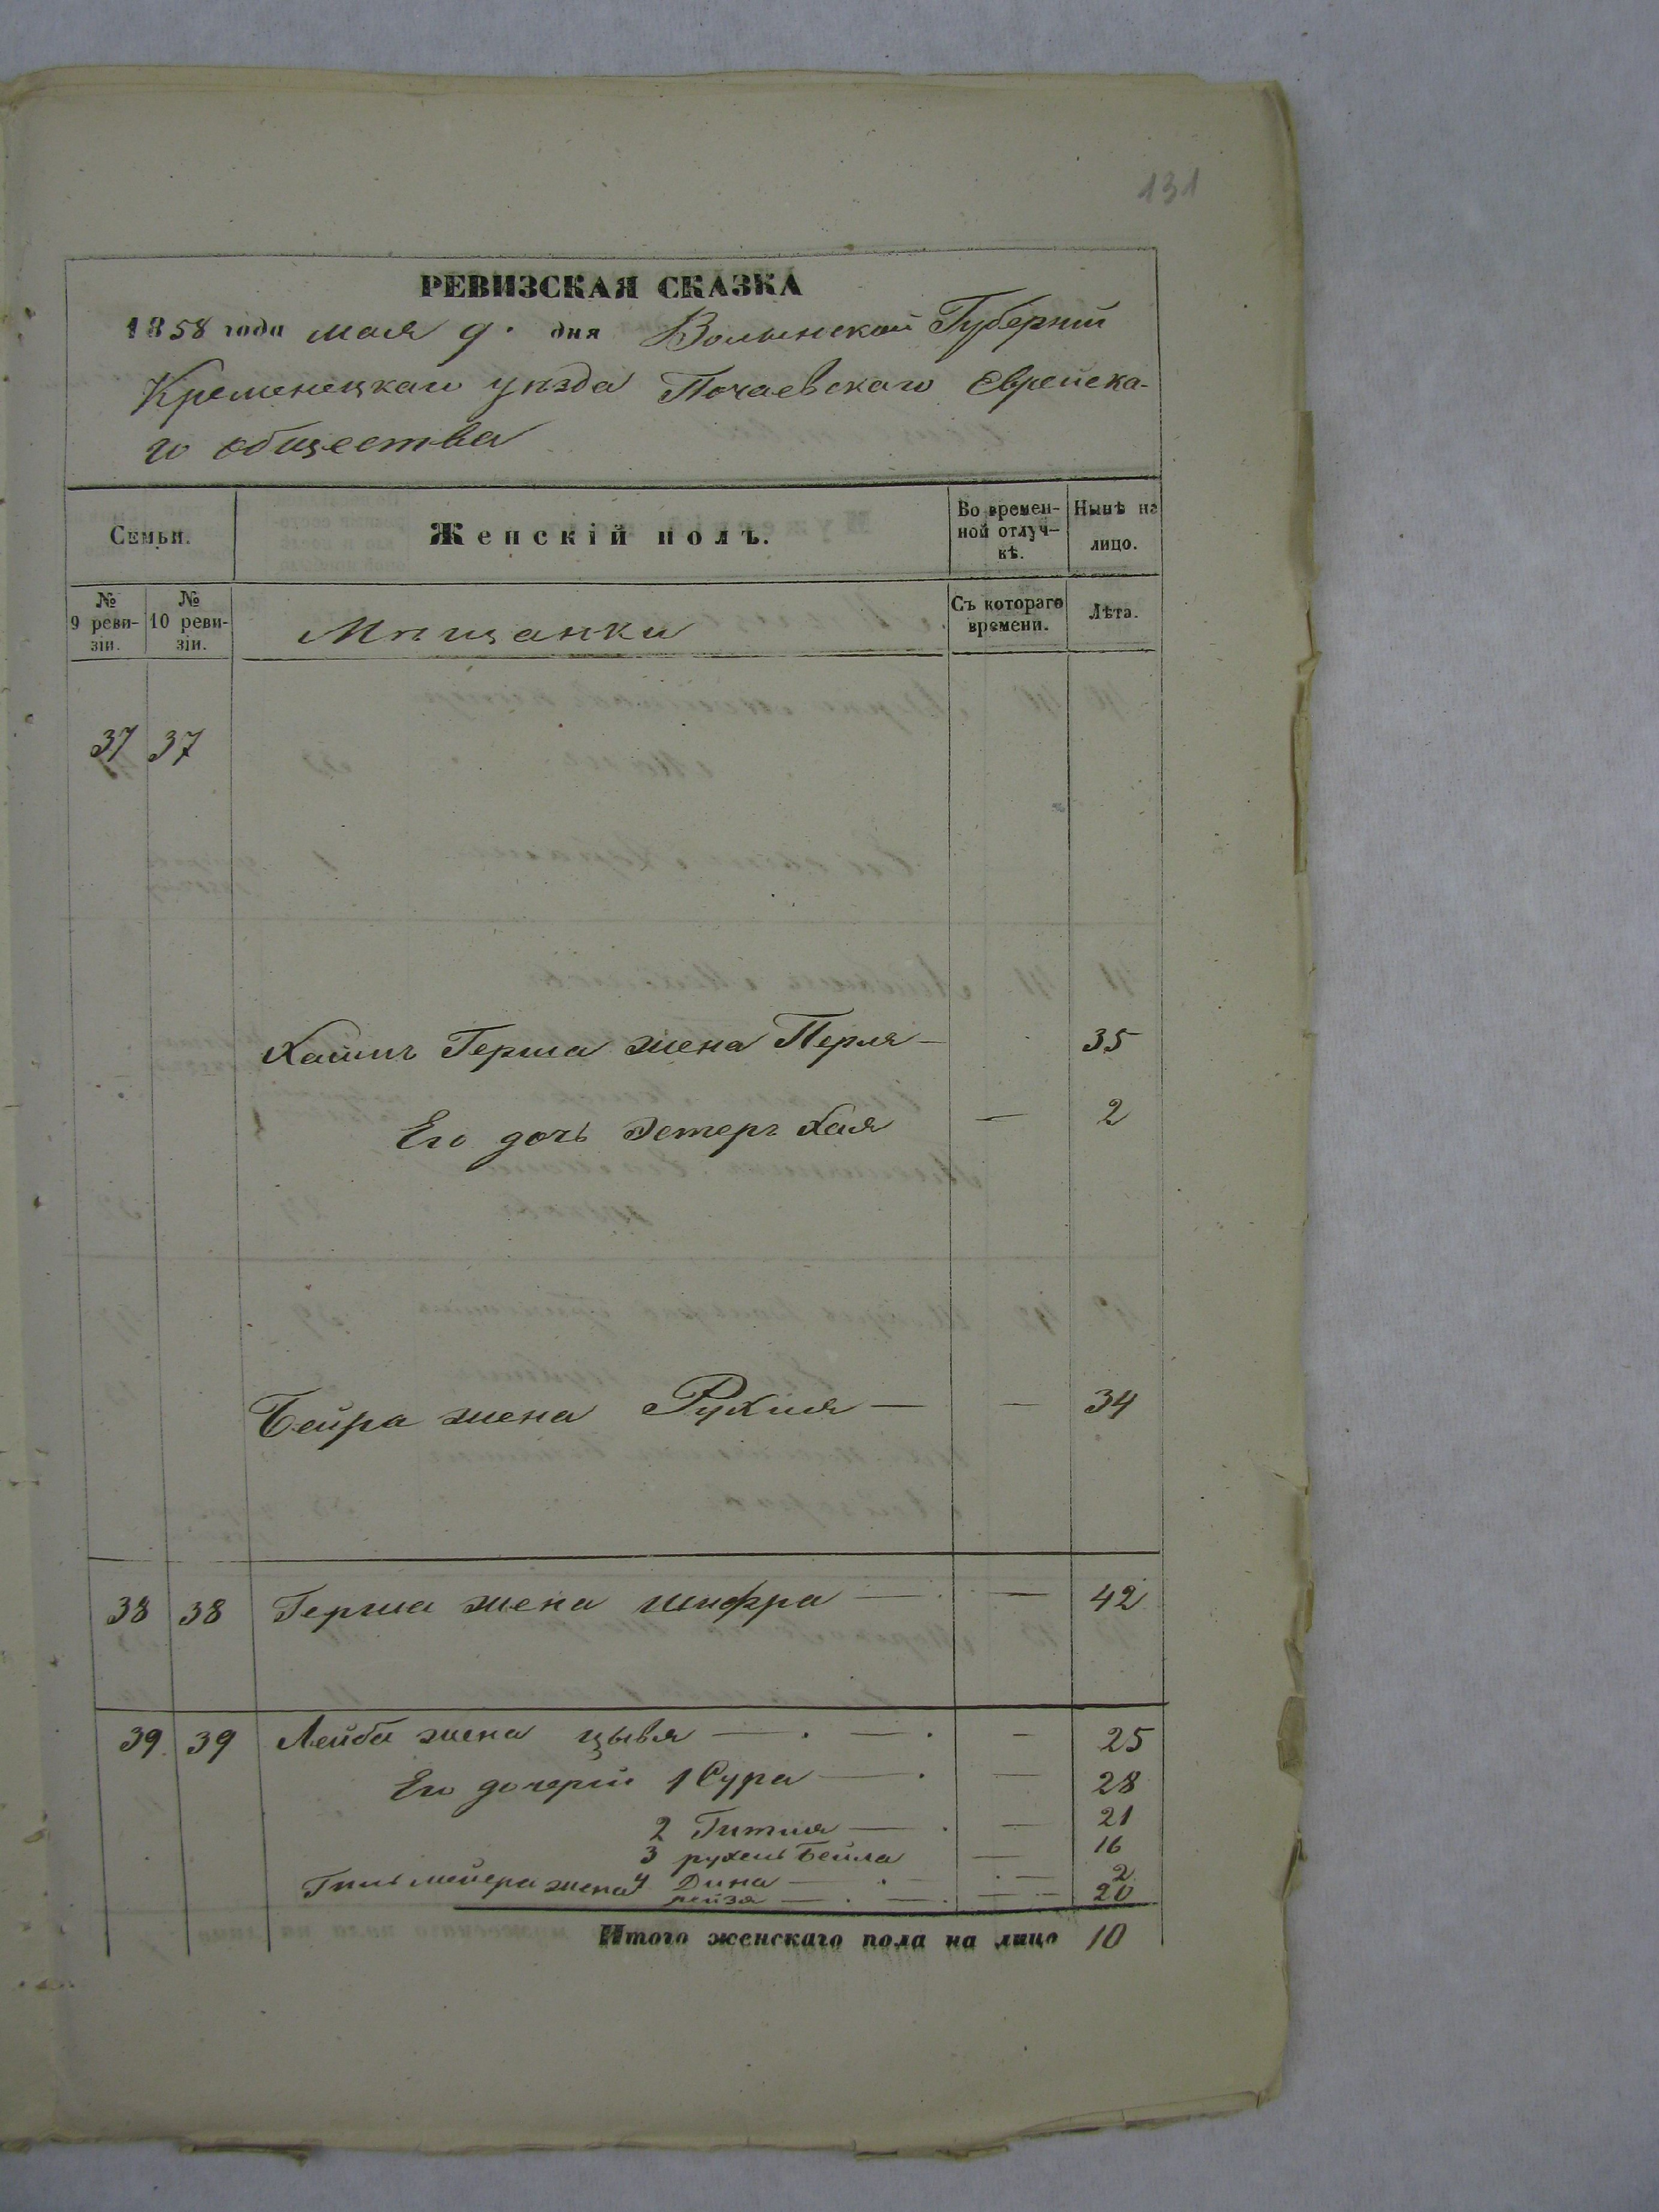 131
РЕВИЗСКАЯ СКАЗКА
1858 года мая 9. дня Волынской Губерніи
Кременецкаго уѣзда Почаевскаго Еврейска-
го общества
Семьи. Женскій полъ. Во времен-ной отлуч-кѣ. Нынѣ на лицо.
№ 9 реви-зіи. № 10 реви-зіи. Мѣщанки Съ котораго времени. Лѣта.
37 37
Хаимъ Герша жена Перля — 35
Его дочь Эстеръ Хая — 2
Бейра жена Рухля — — 34
38 38 Герша жена Шифра — — 42
39 39 Лейба жена Цывя — . — . — 25
Его дочери 1 Сура — . — 28
2 Гитля — . — 21
3 рухель Бейла — 16
4 Дина — . — . — 2
жена рейзя — . — . — . — 20
Итого женскаго пола на лицо 10